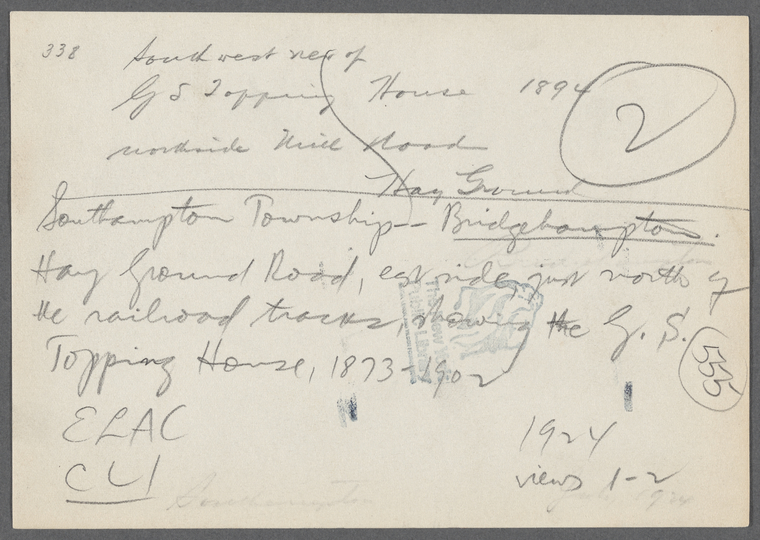 338
Southwest view of
G S Topping House 1894
2
northside Mill Road
Hay Ground
Southampton Township -- Bridgehampton.
Hay Ground Road, east side, just north of
the railroad tracks, showing the G. S.
Topping House, 1873-1902
555
ELAC
CLI
1924
views 1-2
Southampton
1924